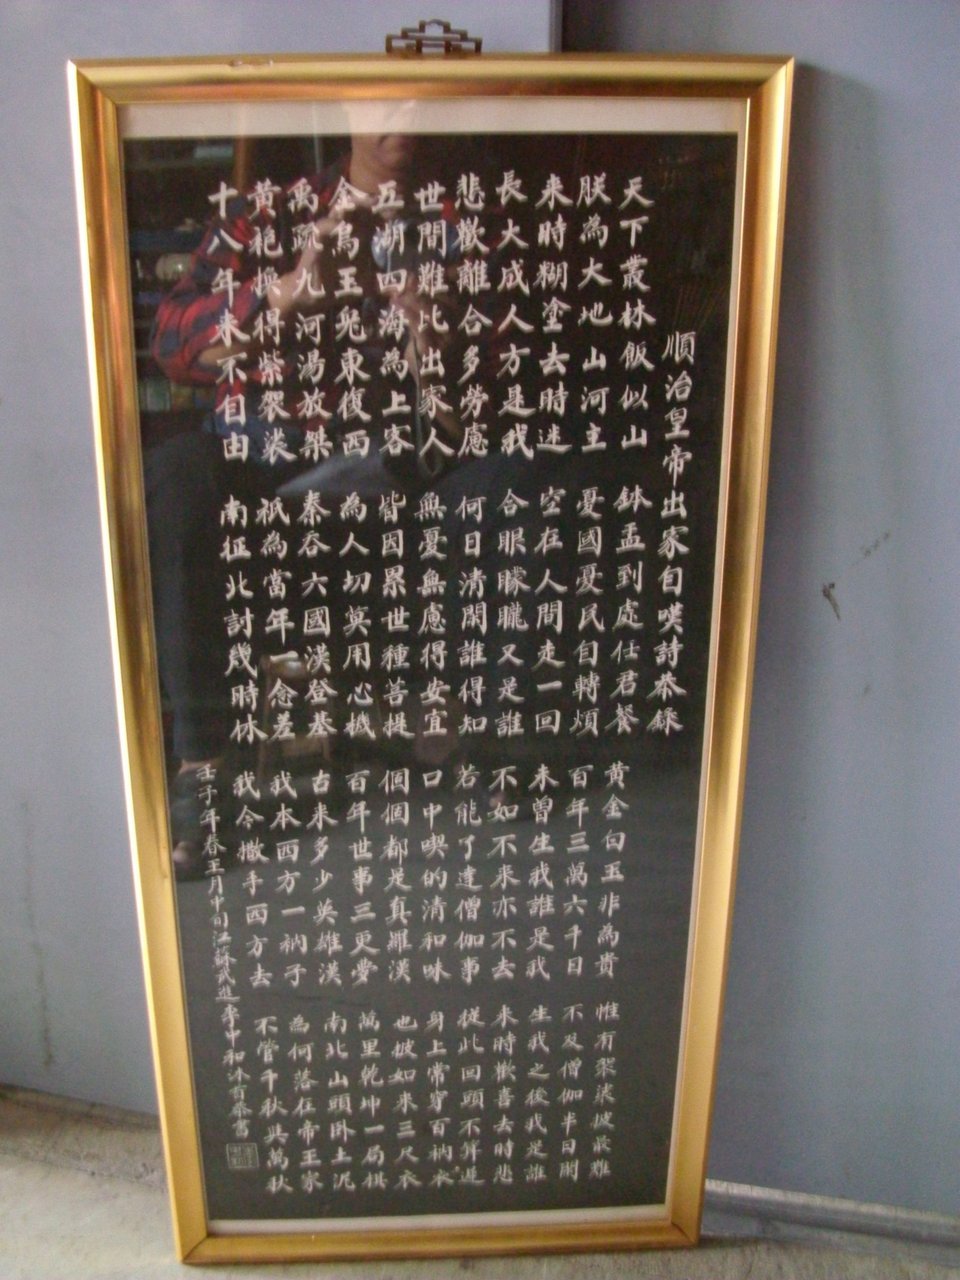 順治皇帝出家自嘆詩恭錄
天下叢林飯似山 鉢盂到處任君餐 黃金白玉非為貴 惟有袈裟披最難
朕為大地山河主 憂國憂民自轉煩 百年三萬六千日 不及僧伽半日閒
来時糊塗去時迷 空在人間走一回 未曾生我誰是我 生我之後我是誰
長大成人方是我 合眼朦朧又是誰 不如不来亦不去 来時歡喜去時悲
悲歡離合多勞慮 何日清閑誰得知 若能了達僧伽事 從此回頭不算遲
世間難比出家人 無憂無慮得安宜 口中喫的清和味 身上常穿百衲衣
五湖四海為上客 皆因累世種菩提 個個都是真羅漢 也披如来三尺衣
金烏玉兔東復西 為人切莫用心機 百年世事三更夢 萬里乾坤一局棋
禹疏九河湯放桀 秦吞六國漢登基 古来多少英雄漢 南北山頭臥土泥
黃袍換得紫袈裟 祇為當年一念差 我本西方一衲子 為何落在帝王家
十八年来不自由 南征北討幾時休 我今撒手西方去 不管千秋與萬秋
壬子年春王月中旬江蘇武進李中和沐首恭書